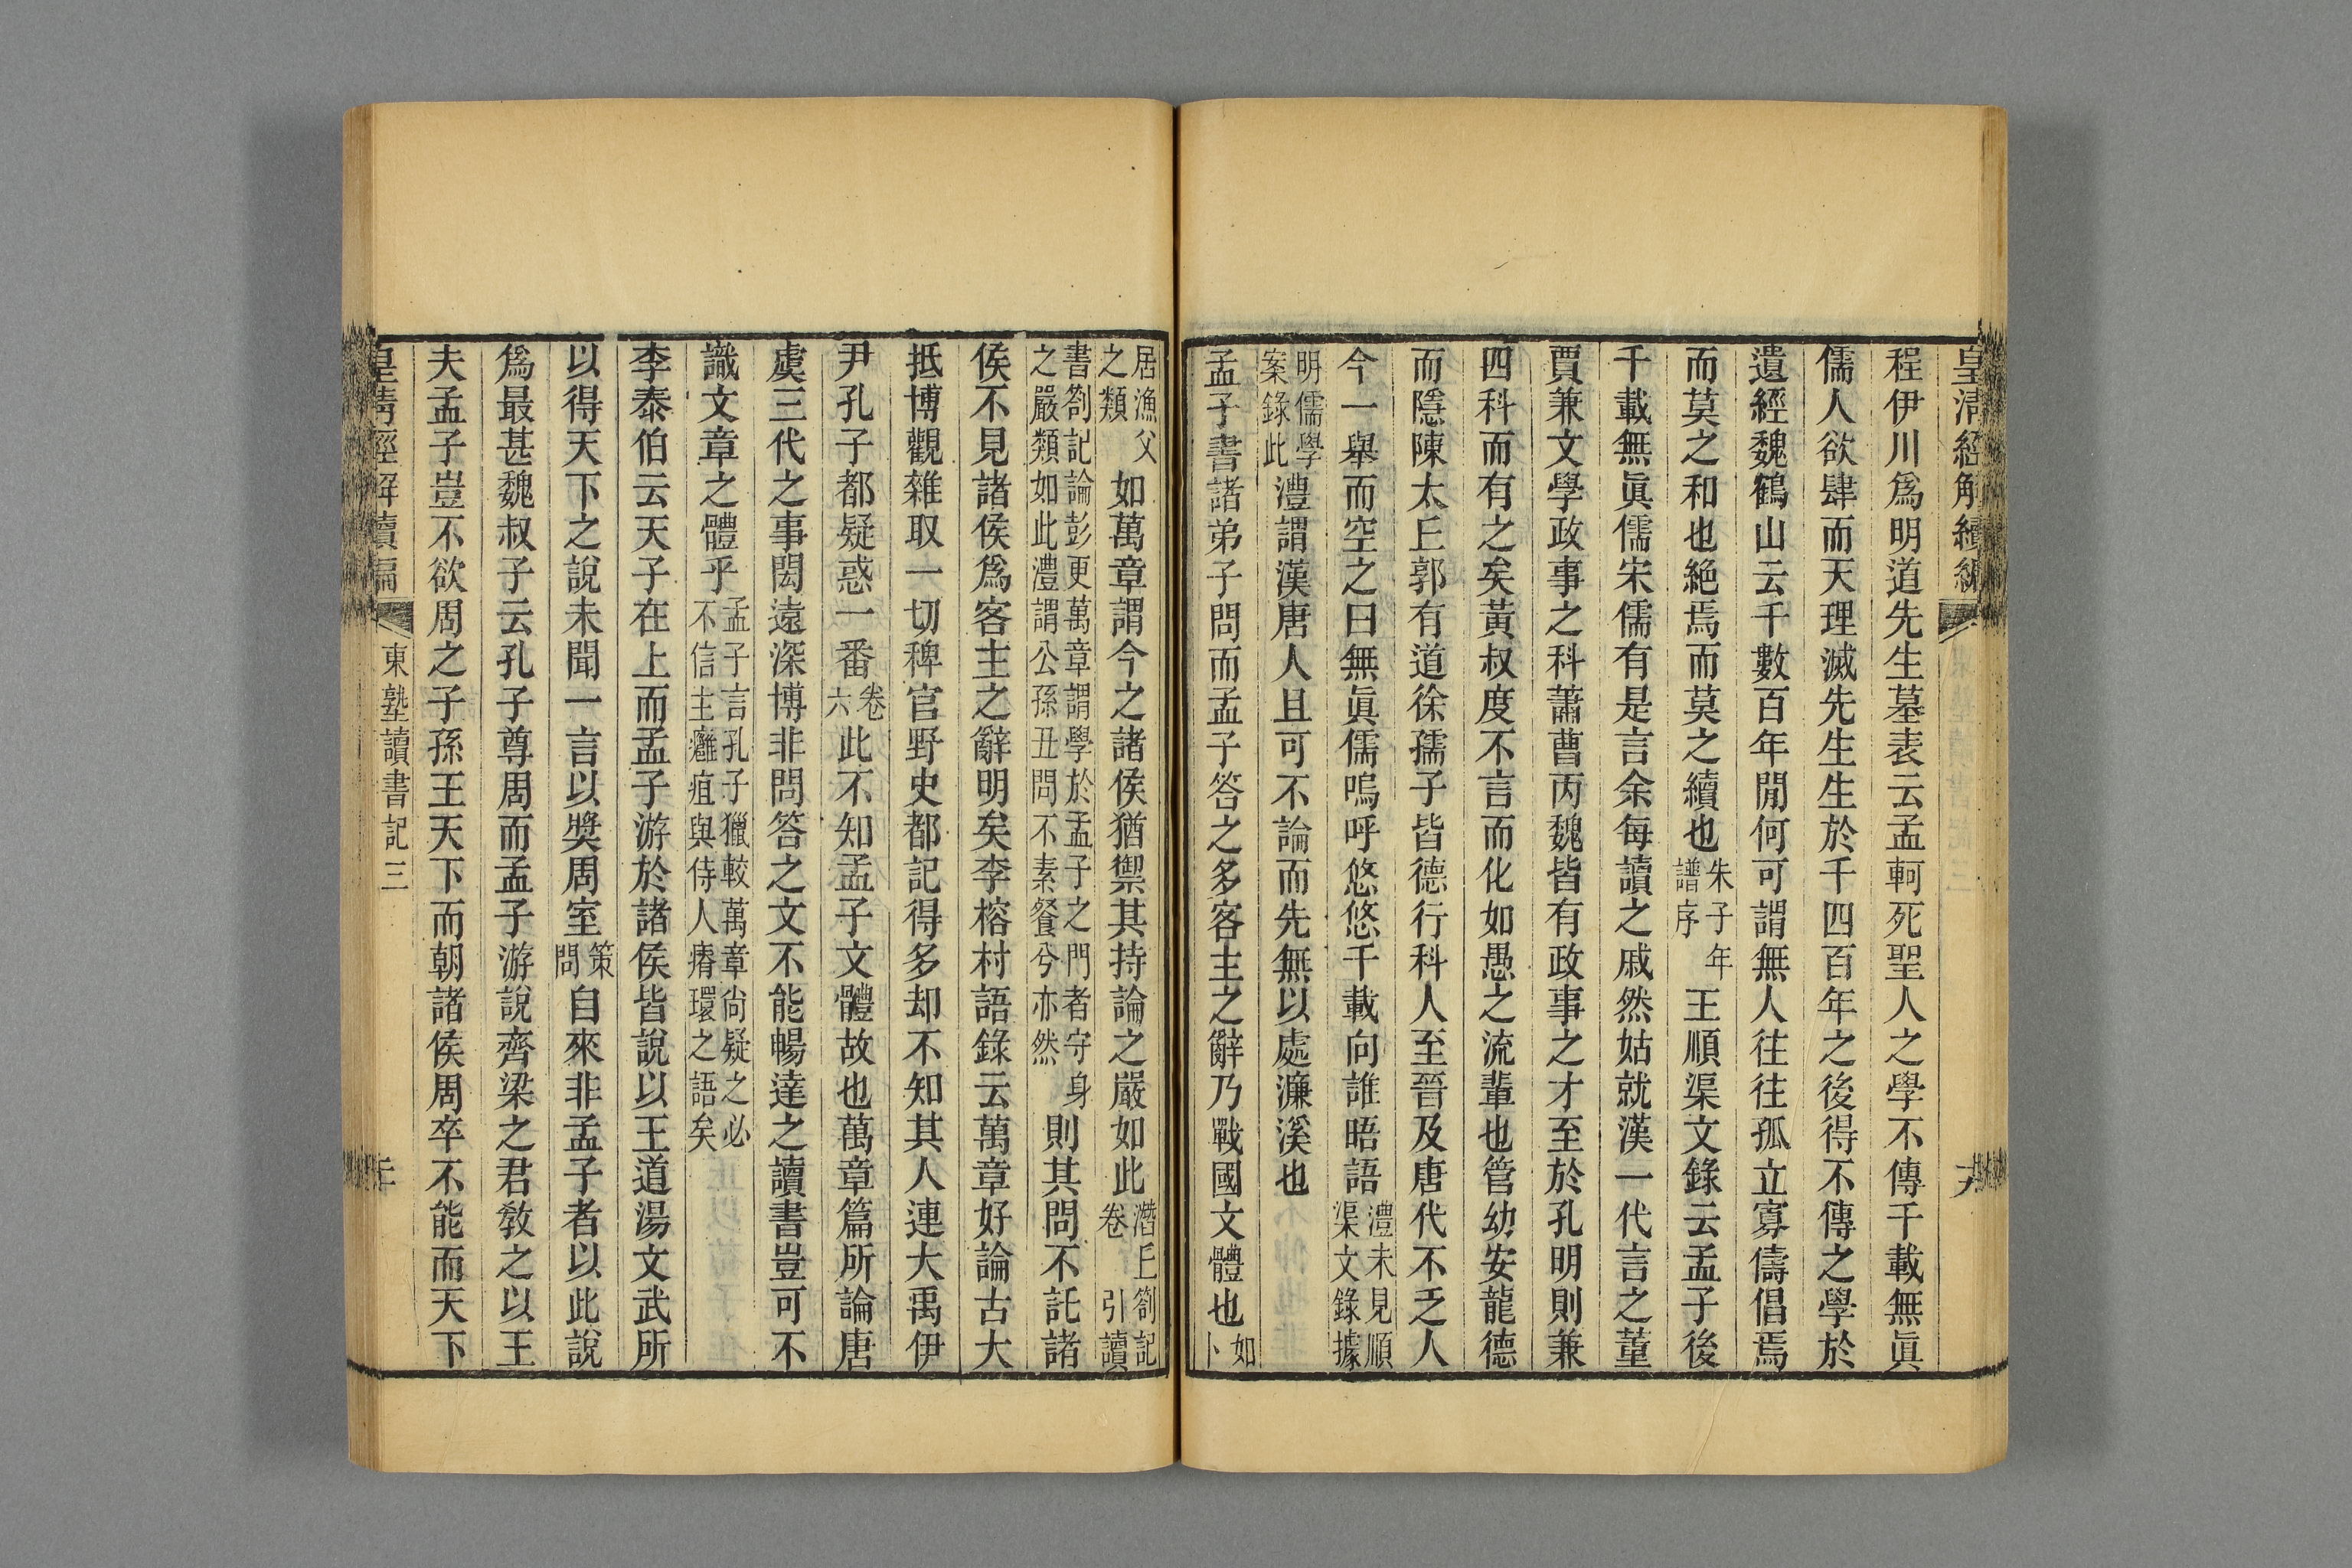 皇淸經解續編
程伊川爲明道先生墓表云孟軻死聖人之學不傳千載無眞
儒人欲肆而天理滅先生生於千四百年之後得不傳之學於
遺經魏鶴山云千數百年閒何可謂無人往往孤立寡儔倡焉
而莫之和也絕焉而莫之續也朱子年譜序王順渠文錄云孟子後
千載無眞儒宋儒有是言余每讀之戚然姑就漢一代言之董
賈兼文學政事之科蕭曹丙魏皆有政事之才至於孔明則兼
四科而有之矣黃叔度不言而化如愚之流輩也管幼安龍德
而隱陳太丘郭有道徐孺子皆德行科人至晉及唐代不乏人
今一舉而空之曰無眞儒嗚呼悠悠千載向誰晤語澧未見順渠文錄據
明儒學案錄此澧謂漢唐人且可不論而先無以處濂溪也
孟子書諸弟子問而孟子答之多客主之辭乃戰國文體也如卜
居漁父之類如萬章謂今之諸侯猶禦其持論之嚴如此潛丘劄記卷引讀
書劄記論彭更萬章謂學於孟子之門者守身之嚴類如此澧謂公孫丑問不素餐兮亦然則其問不託諸
侯不見諸侯爲客主之辭明矣李榕村語錄云萬章好論古大
抵博觀雜取一切稗官野史都記得多却不知其人連大禹伊
尹孔子都疑惑一番卷六此不知孟子文體故也萬章篇所論唐
虞三代之事閎遠深博非問答之文不能暢達之讀書豈可不
識文章之體乎孟子言孔子獵較萬章尙疑之必不信主癰疽與侍人瘠環之語矣
李泰伯云天子在上而孟子游於諸侯皆說以王道湯文武所
以得天下之說未聞一言以獎周室策問自來非孟子者以此說
爲最甚魏叔子云孔子尊周而孟子游說齊梁之君敎之以王
夫孟子豈不欲周之子孫王天下而朝諸侯周卒不能而天下
皇淸經解續編
東塾讀書記三